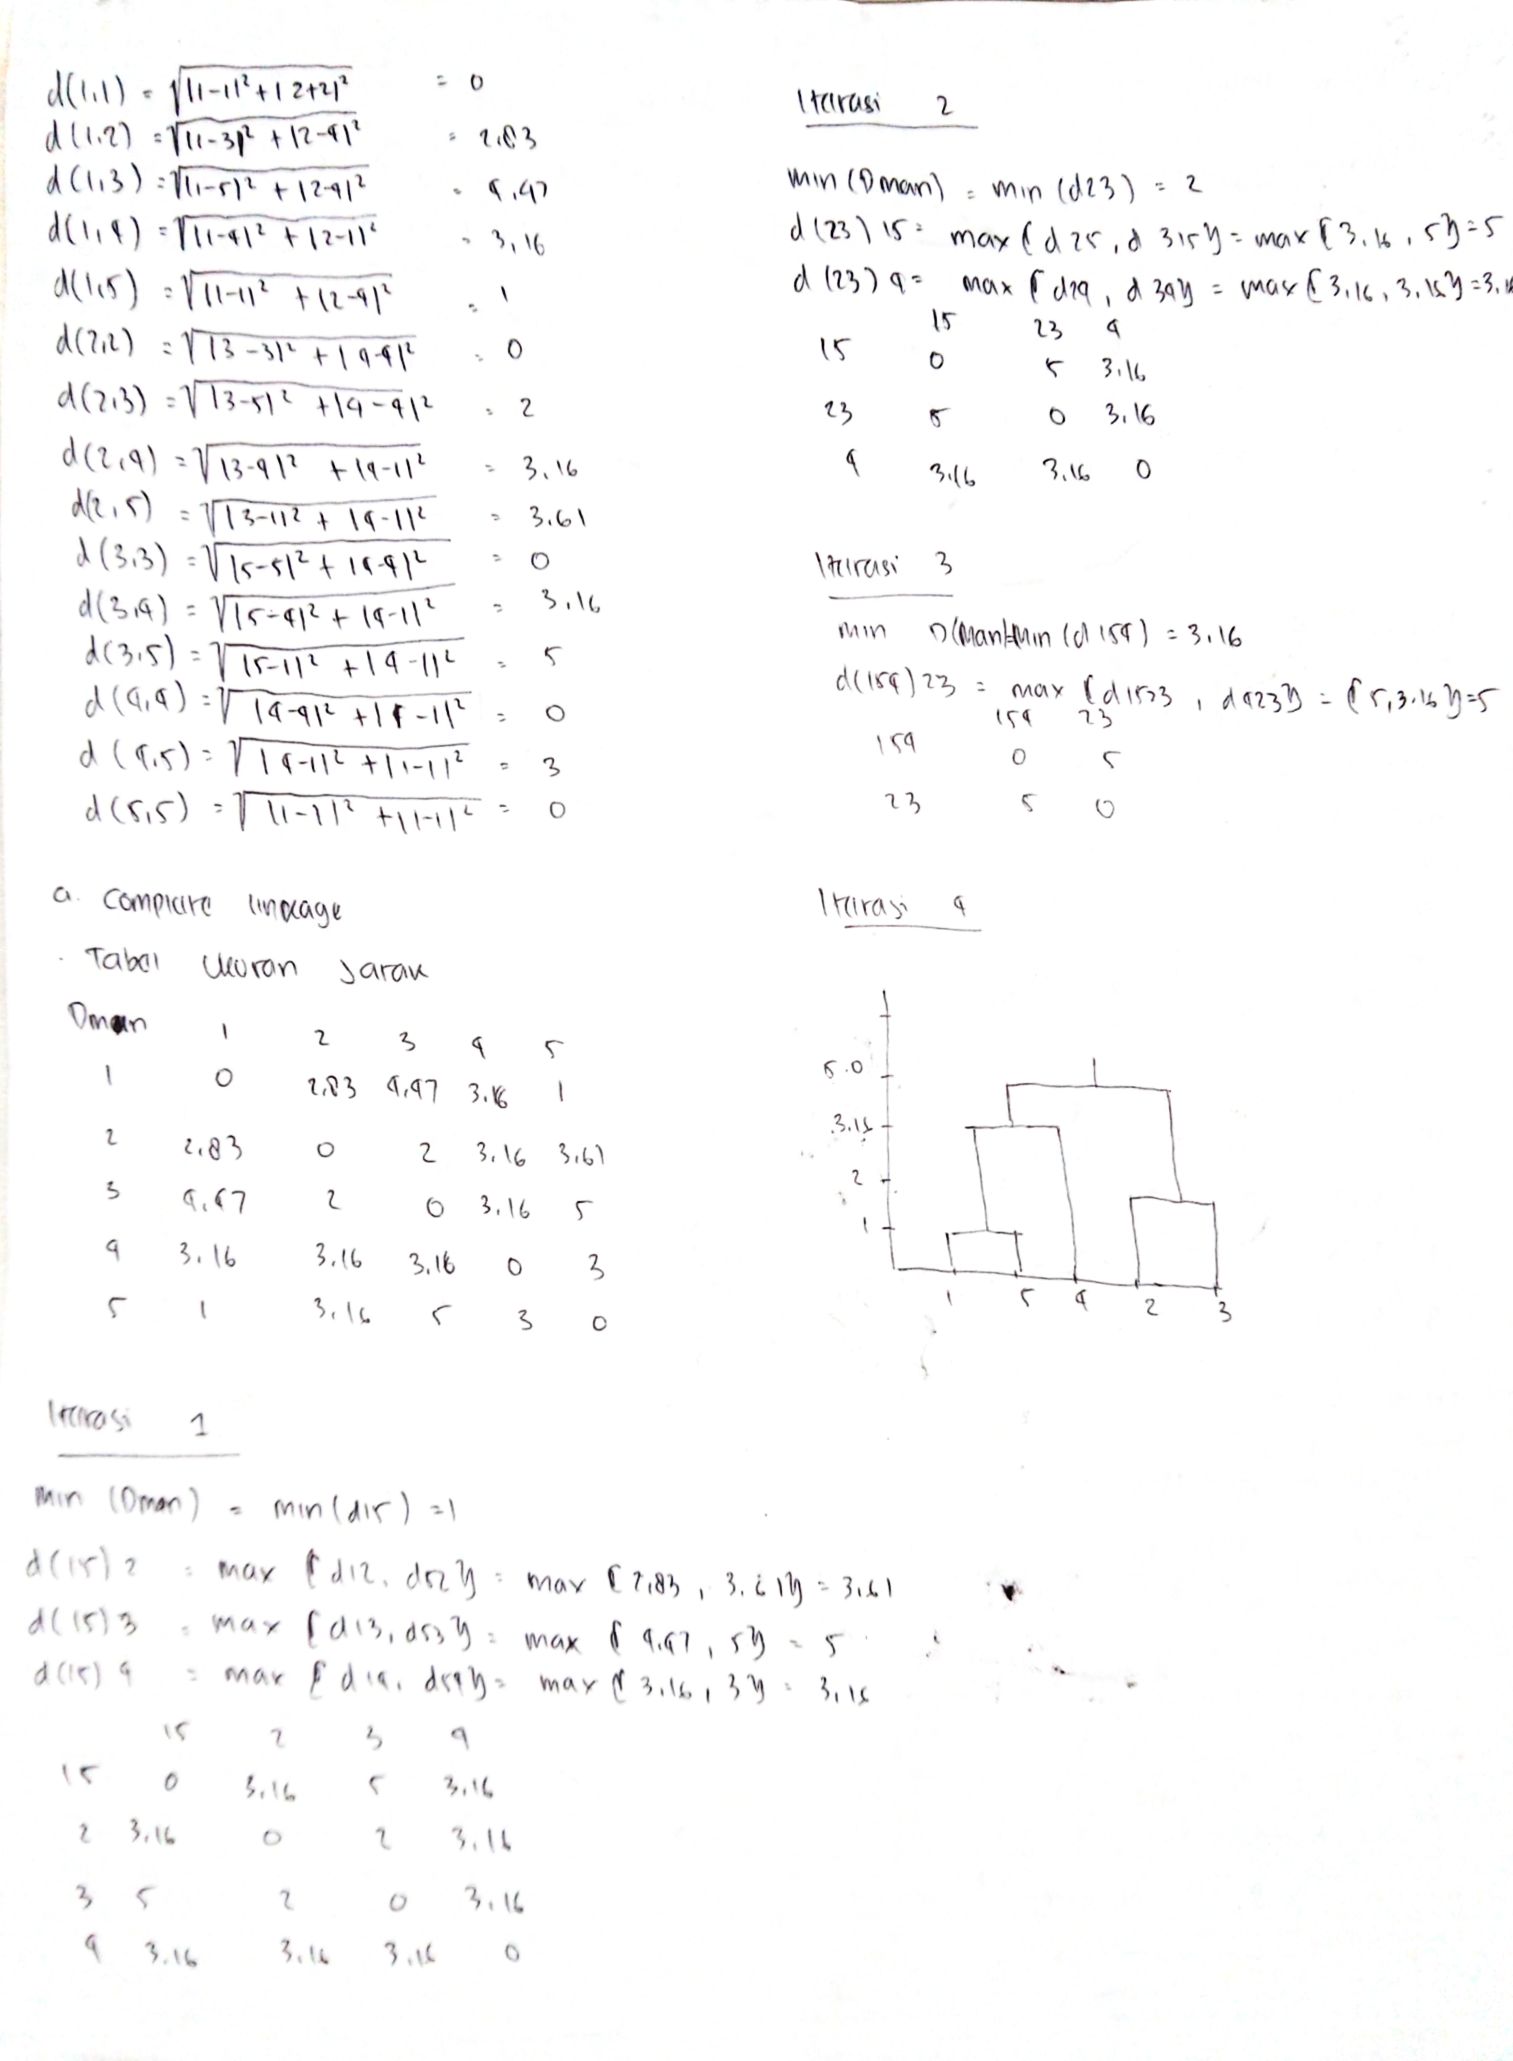 d(1,1) = √|1-1|²+|2+2|² = 0
d(1,2) = √|1-3|² + |2-4|² = 2.83
d(1,3) = √|1-5|² + |2-4|² = 4,47
d(1,4) = √|1-4|² + |2-1|² = 3,16
d(1,5) = √|1-1|² + |2-4|² = 1
d(2,2) = √|3-3|² + |4-4|² = 0
d(2,3) = √|3-5|² + |4-4|² = 2
d(2,4) = √|3-4|² + |4-1|² = 3,16
d(2,5) = √|3-1|² + |4-1|² = 3.61
d(3,3) = √|5-5|² + |4-4|² = 0
d(3,4) = √|5-4|² + |4-1|² = 3.16
d(3,5) = √|5-1|² + |4-1|² = 5
d(4,4) = √|4-4|² + |1-1|² = 0
d(4,5) = √|4-1|² + |1-1|² = 3
d(5,5) = √|1-1|² + |1-1|² = 0
a. Complete linkage
. Tabel Ukuran Jarak
Dman 1 2 3 4 5
1 0 2,83 4,47 3.16 1
2 2,83 0 2 3,16 3,61
3 4.47 2 0 3.16 5
4 3.16 3,16 3,16 0 3
5 1 3.16 5 3 0
Iterasi 1
min (Dman) = min(d15) = 1
d(15)2 = max {d12, d52} = max {2,83, 3.61} = 3,61
d(15)3 = max {d13, d53} = max {4.47, 5} = 5
d(15)4 = max {d14, d54} = max {3.16, 3} = 3,16
15 2 3 4
15 0 3.16 5 3,16
2 3,16 0 2 3,16
3 5 2 0 3.16
4 3.16 3.16 3.16 0
Iterasi 2
min (Dman) = min (d23) = 2
d(23)15 = max {d25, d315} = max {3.16, 5} = 5
d(23)4 = max {d24, d34} = max {3,16, 3,16} = 3,16
15 23 4
15 0 5 3,16
23 5 0 3.16
4 3.16 3.16 0
Iterasi 3
min D(man)=min (d 154) = 3.16
d(154)23 = max {d1523, d423} = {5,3.16} = 5
154 23
154 0 5
23 5 0
Iterasi 4
5.0
3.16
2
1
1 5 4 2 3